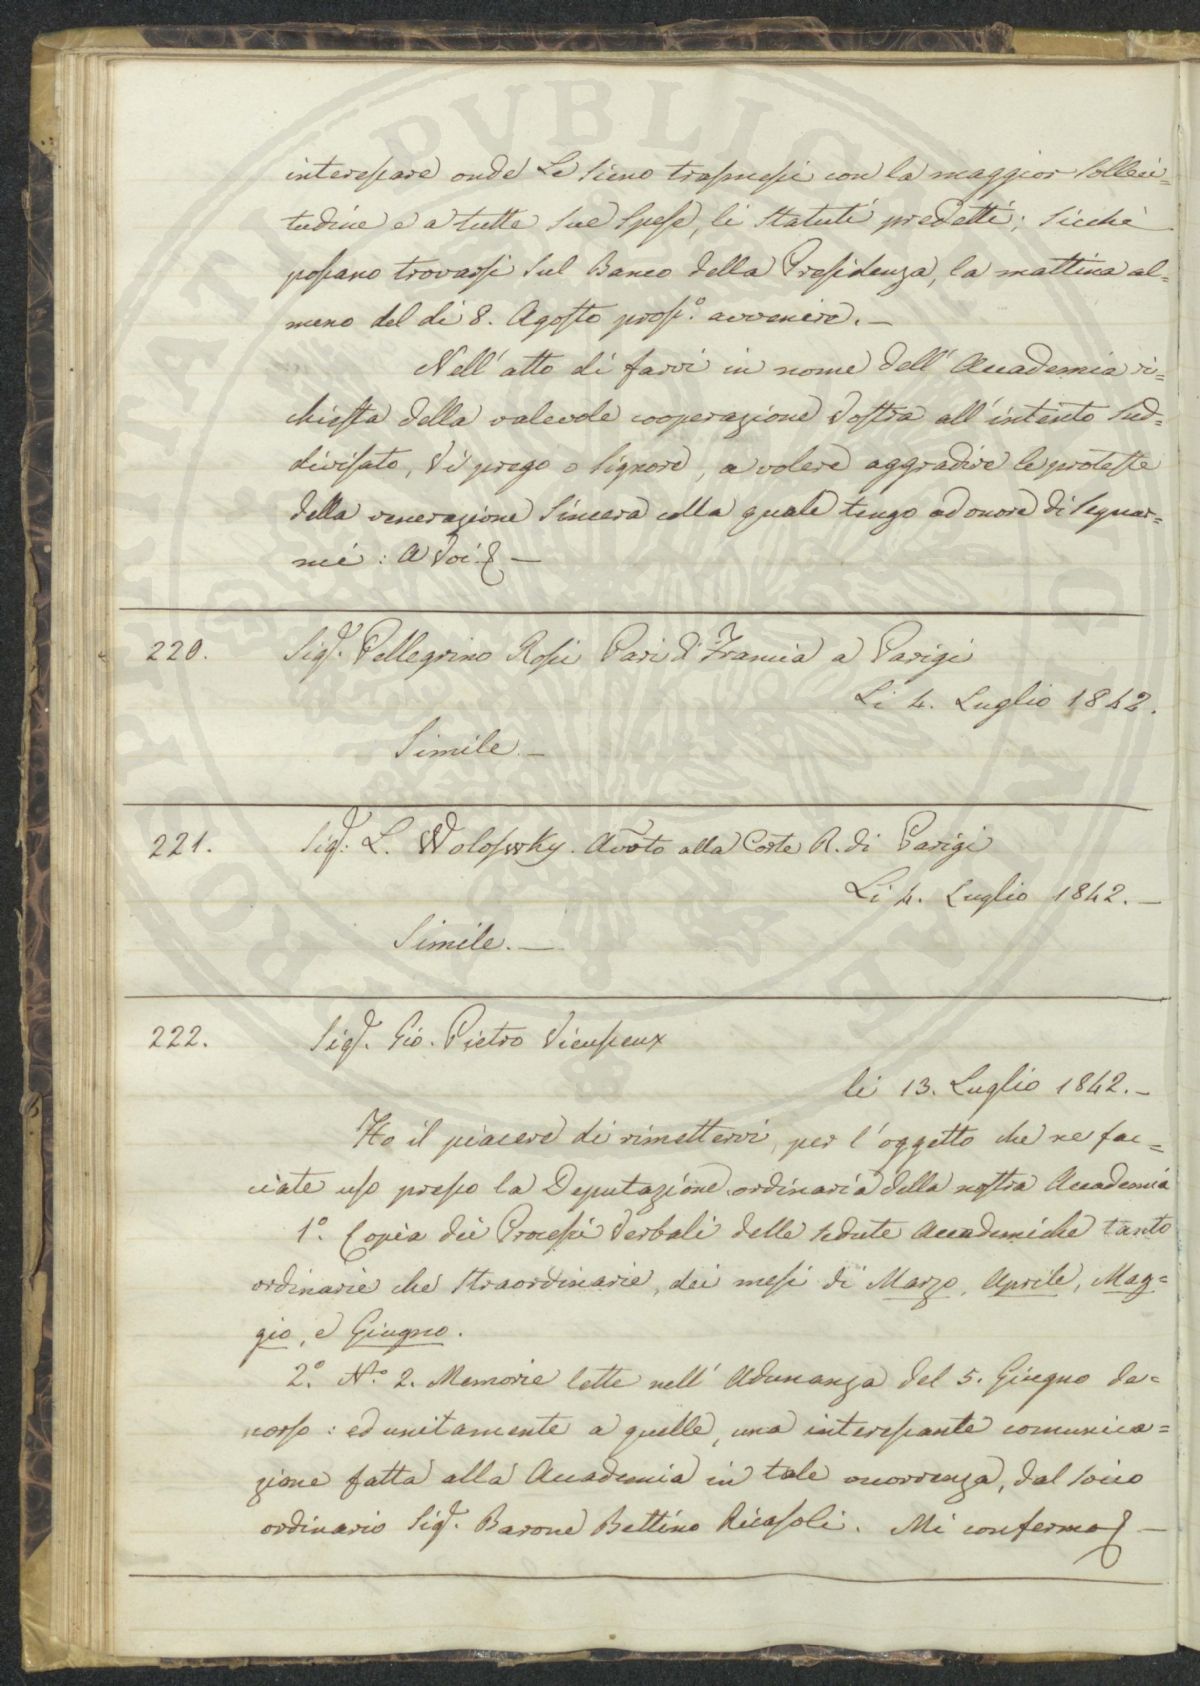 interessare onde Le sieno trasmessi con la maggior solleci=
tudine e a tutte sue spese, li Statuti predetti; sicché
possano trovarsi sul Banco della Presidenza, la mattina al=
meno del dì 8. Agosto pross.º avvenire. —
Nell'atto di farvi in nome dell'Accademia ri=
chiesta della valevole cooperazione Vostra all'intento sud=
divisato, Vi prego o Signore, a volere aggradire le proteste
della venerazione sincera colla quale tengo ad onore di segnar=
mi: A Voi &. —
220. Sigr. Pellegrino Rossi Pari di Francia a Parigi
Li 4. Luglio 1842.
Simile. —
221. Sigr. L. Wolosvsky. Avvto alla Corte R. di Parigi
Li 4. Luglio 1842. —
Simile. —
222. Sigr. Gio. Pietro Vieusseux
li 13. Luglio 1842. —
Ho il piacere di rimettervi, per l'oggetto che ne fac=
ciate uso presso la Deputazione ordinaria della nostra Accademia
1.º Copia dei Processi Verbali delle sedute Accademiche tanto
ordinarie che straordinarie, dei mesi di Marzo, Aprile, Mag=
gio, e Giugno.
2.º N.º 2. Memorie lette nell'Adunanza del 5. Giugno de=
corso: ed unitamente a quelle, una interessante comunica=
zione fatta alla Accademia in tale occorrenza, dal socio
ordinario Sigr. Barone Bettino Ricasoli. Mi confermo &. —